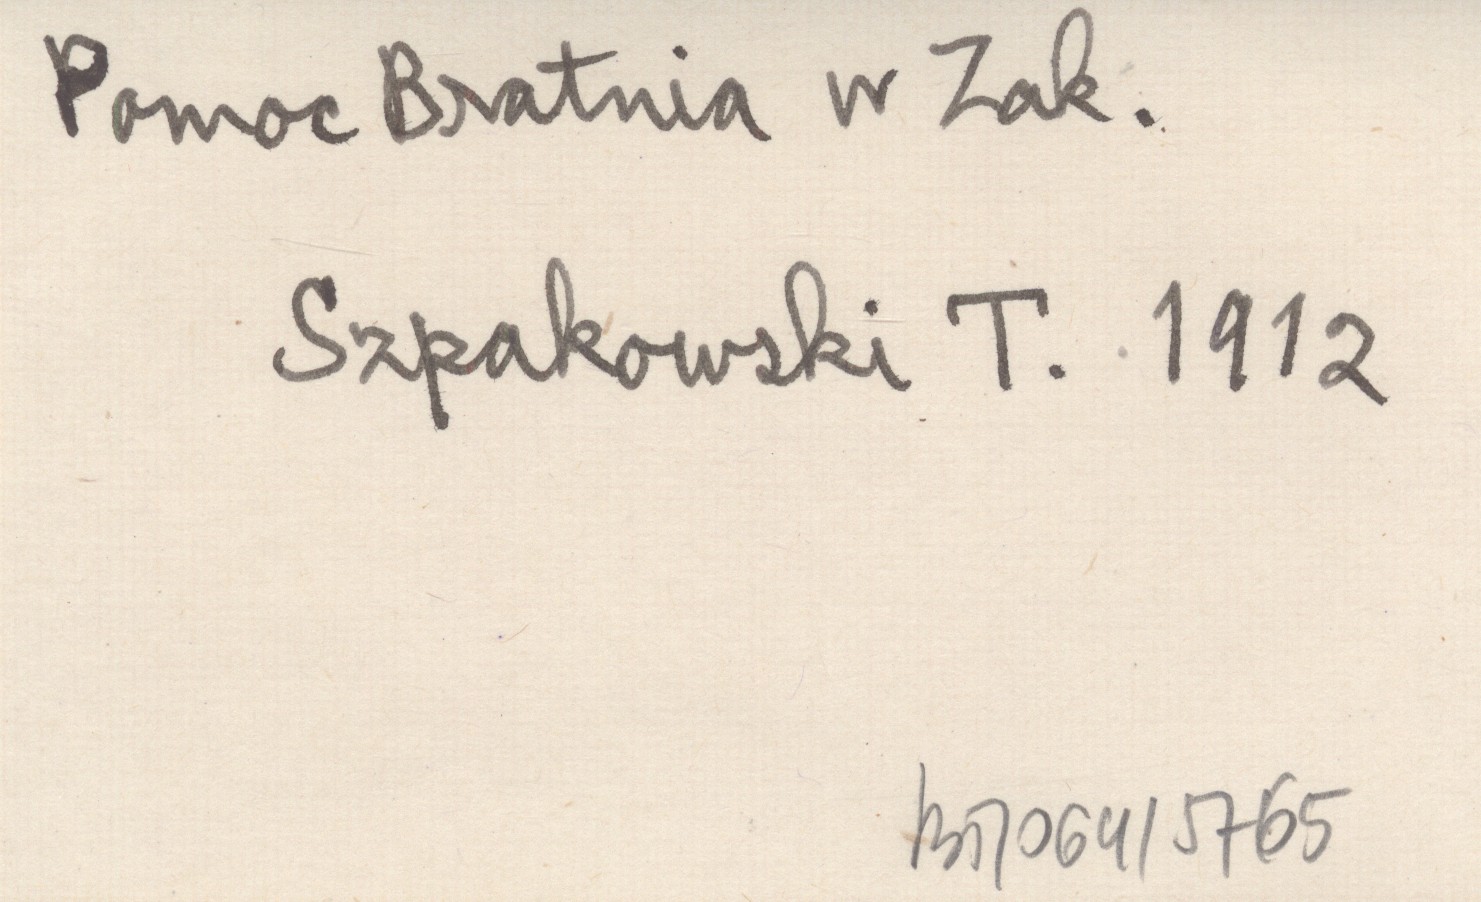 Pomoc Bratnia w Zak.
Szpakowski T. 1912
5765